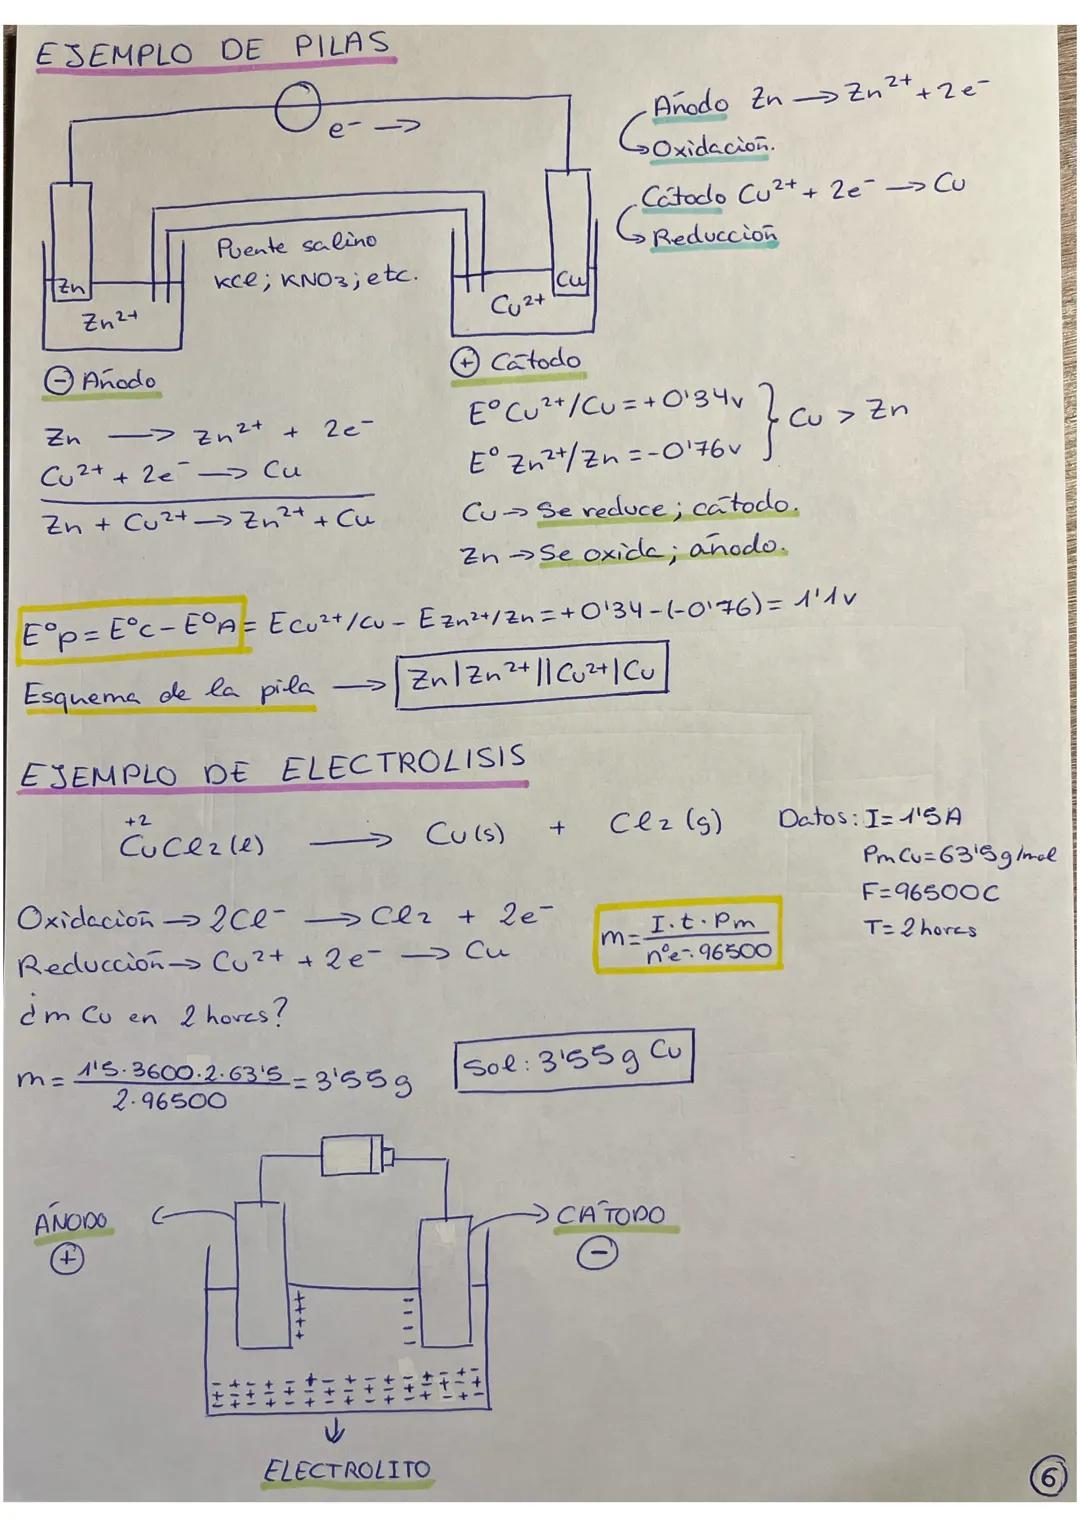 EJEMPLO DE PILAS
e⁻ →
Ánodo Zn → Zn²⁺ + 2e⁻
Oxidación.
Cátodo Cu²⁺ + 2e⁻ → Cu
Reducción
Puente salino
KCl; KNO₃; etc.
Zn
Zn²⁺
Cu
Cu²⁺
⊖ Ánodo
⊕ Cátodo
Zn → Zn²⁺ + 2e⁻
Cu²⁺ + 2e⁻ → Cu
Zn + Cu²⁺ → Zn²⁺ + Cu
E° Cu²⁺/Cu = +0'34v
E° Zn²⁺/Zn = -0'76v
} Cu > Zn
Cu → Se reduce; cátodo.
Zn → Se oxida; ánodo.
E°p = E°C - E°A = E Cu²⁺/Cu - E Zn²⁺/Zn = +0'34 - (-0'76) = 1'1v
Esquema de la pila → Zn|Zn²⁺||Cu²⁺|Cu
EJEMPLO DE ELECTROLISIS
+2
CuCl₂(l) → Cu(s) + Cl₂(g)
Datos: I = 1'5A
Pm Cu = 63'5g/mol
F = 96500C
T = 2 horas
Oxidación → 2Cl⁻ → Cl₂ + 2e⁻
Reducción → Cu²⁺ + 2e⁻ → Cu
m = I·t·Pm / nºe⁻·96500
¿m Cu en 2 horas?
m = 1'5·3600·2·63'5 / 2·96500 = 3'55g
Sol: 3'55g Cu
ÁNODO
⊕
CÁTODO
⊖
ELECTROLITO
6